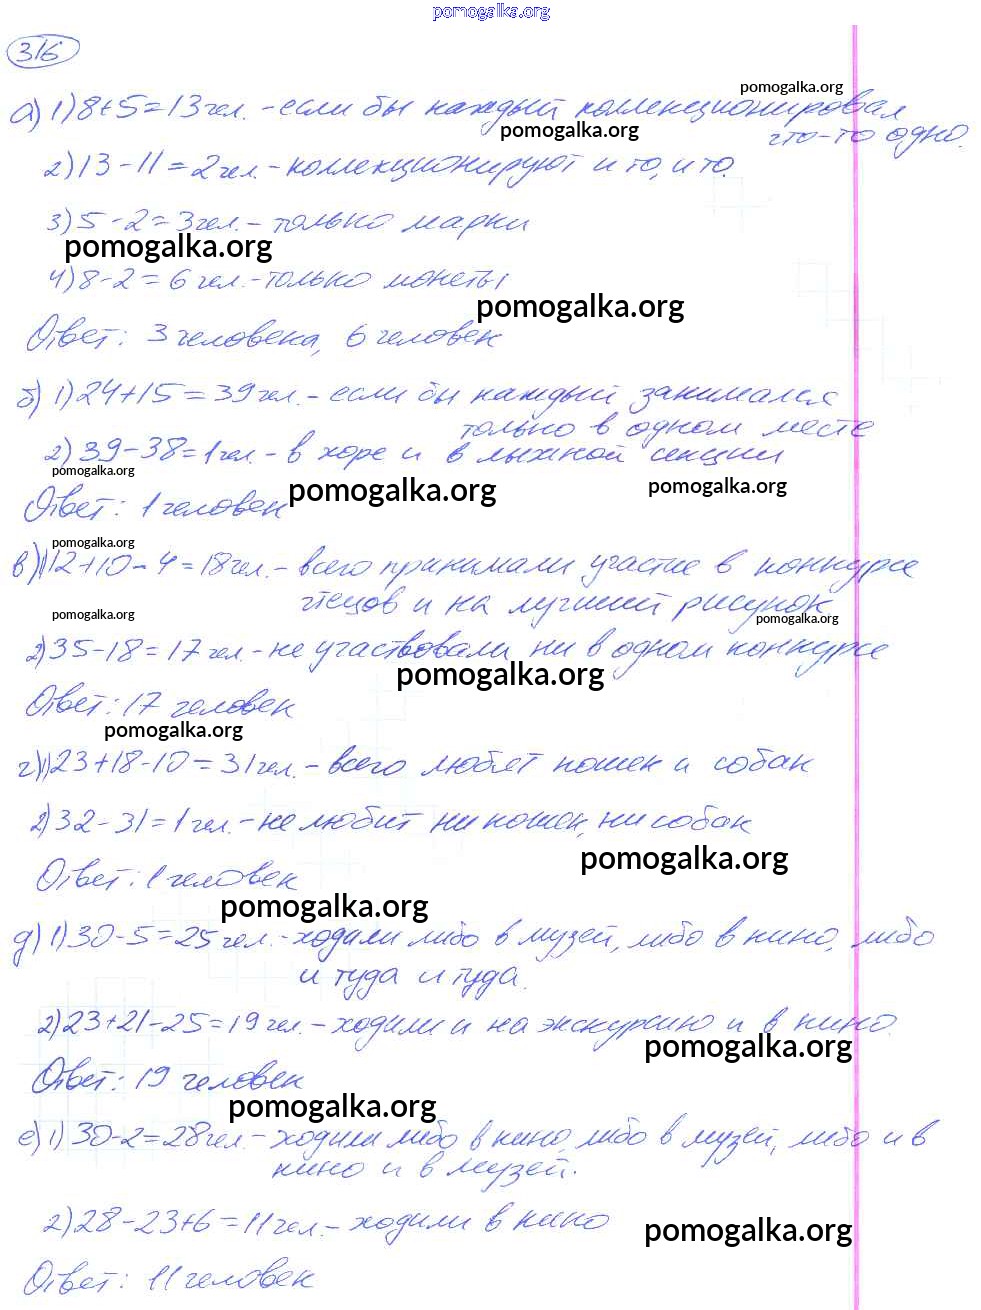 pomogalka.org
316
pomogalka.org
а) 1) 8+5=13 чел. - если бы каждый коллекционировал
pomogalka.org
что-то одно.
2) 13-11=2 чел. - коллекционируют и то, и то.
3) 5-2=3 чел. - только марки
pomogalka.org
4) 8-2=6 чел. - только монеты
pomogalka.org
Ответ: 3 человека, 6 человек
б) 1) 24+15=39 чел. - если бы каждый занимался
только в одном месте
2) 39-38=1 чел. - в хоре и в лыжной секции
pomogalka.org
pomogalka.org
pomogalka.org
Ответ: 1 человек
pomogalka.org
в) 1) 12+10-4=18 чел. - всего принимали участие в конкурсе
чтецов и на лучший рисунок
pomogalka.org
pomogalka.org
2) 35-18=17 чел. - не участвовали ни в одном конкурсе
pomogalka.org
Ответ: 17 человек
pomogalka.org
г) 1) 23+18-10=31 чел. - всего любят кошек и собак
2) 32-31=1 чел. - не любит ни кошек, ни собак
pomogalka.org
Ответ: 1 человек
pomogalka.org
д) 1) 30-5=25 чел. - ходили либо в музей, либо в кино, либо
и туда и туда.
2) 23+21-25=19 чел. - ходили и на экскурсию и в кино.
pomogalka.org
Ответ: 19 человек
pomogalka.org
е) 1) 30-2=28 чел. - ходили либо в кино, либо в музей, либо и в
кино и в музей.
2) 28-23+6=11 чел. - ходили в кино
pomogalka.org
Ответ: 11 человек